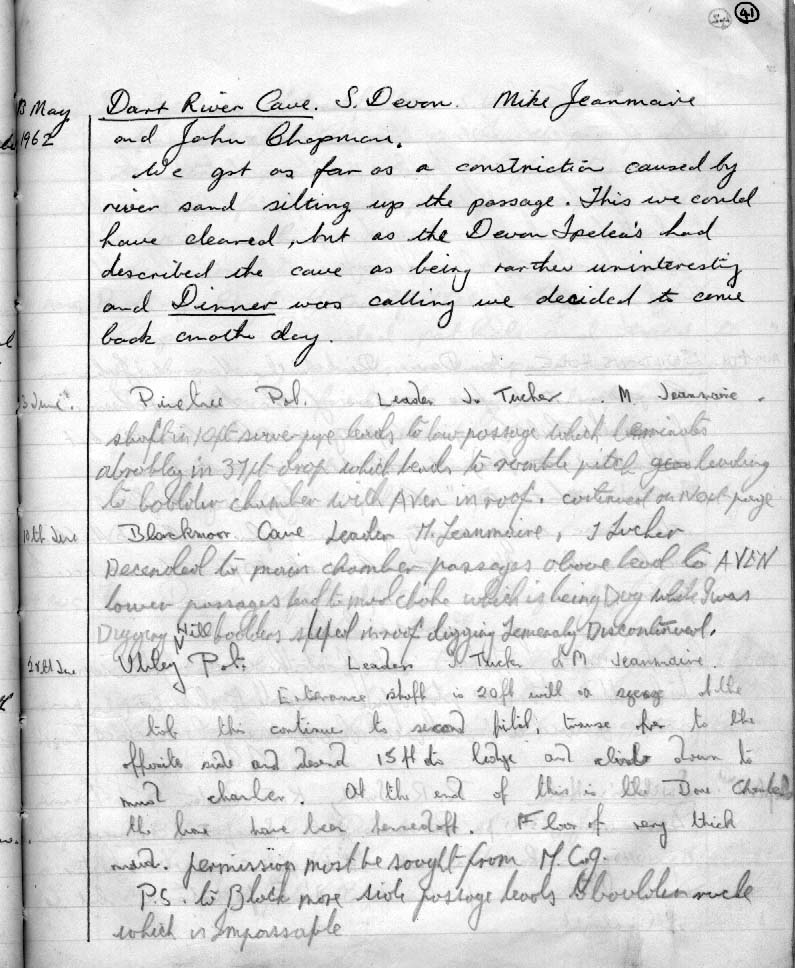 41
13 May Dart River Cave. S. Devon. Mike Jeanmaire
1962 and John Chapman.
We got as far as a constriction caused by
river sand silting up the passage. This we could
have cleared, but as the Devon Spelea's had
described the cave as being rarther uninterestig
and Dinner was calling we decided to come
back another day.
3 June. Pinetree Pot. Leader J. Tucker. M Jeanmaire.
shaft in 10ft sewer pipe leads to low passage which terminates
in 37ft drop which leads to pitch leading
to boulder chamber with AVEN in roof. continued on Next page
10th June Blackmoor Cave Leader M. Jeanmaire, J Tucker
Decended to main chamber passages above lead to AVEN
lower passages lead to mud choke which is being Dug while I was
Digging Hill boulders sliped in roof digging Temeraly Discontinued.
Utley Pot. Leaders J Tuck & M Jeanmaire.
Enterance shaft is 20ft with a at the
this continue to second pitch, to the
opposite side and desend 15ft to ledge and climb down to
mud chamber. At the end of this is the Bone Chamber
the bone have been fenced off. Floor of very thick
mud. permission must be sought from M.C.G.
P.S. to Black more side passage leads to boulder
which is Impassaple